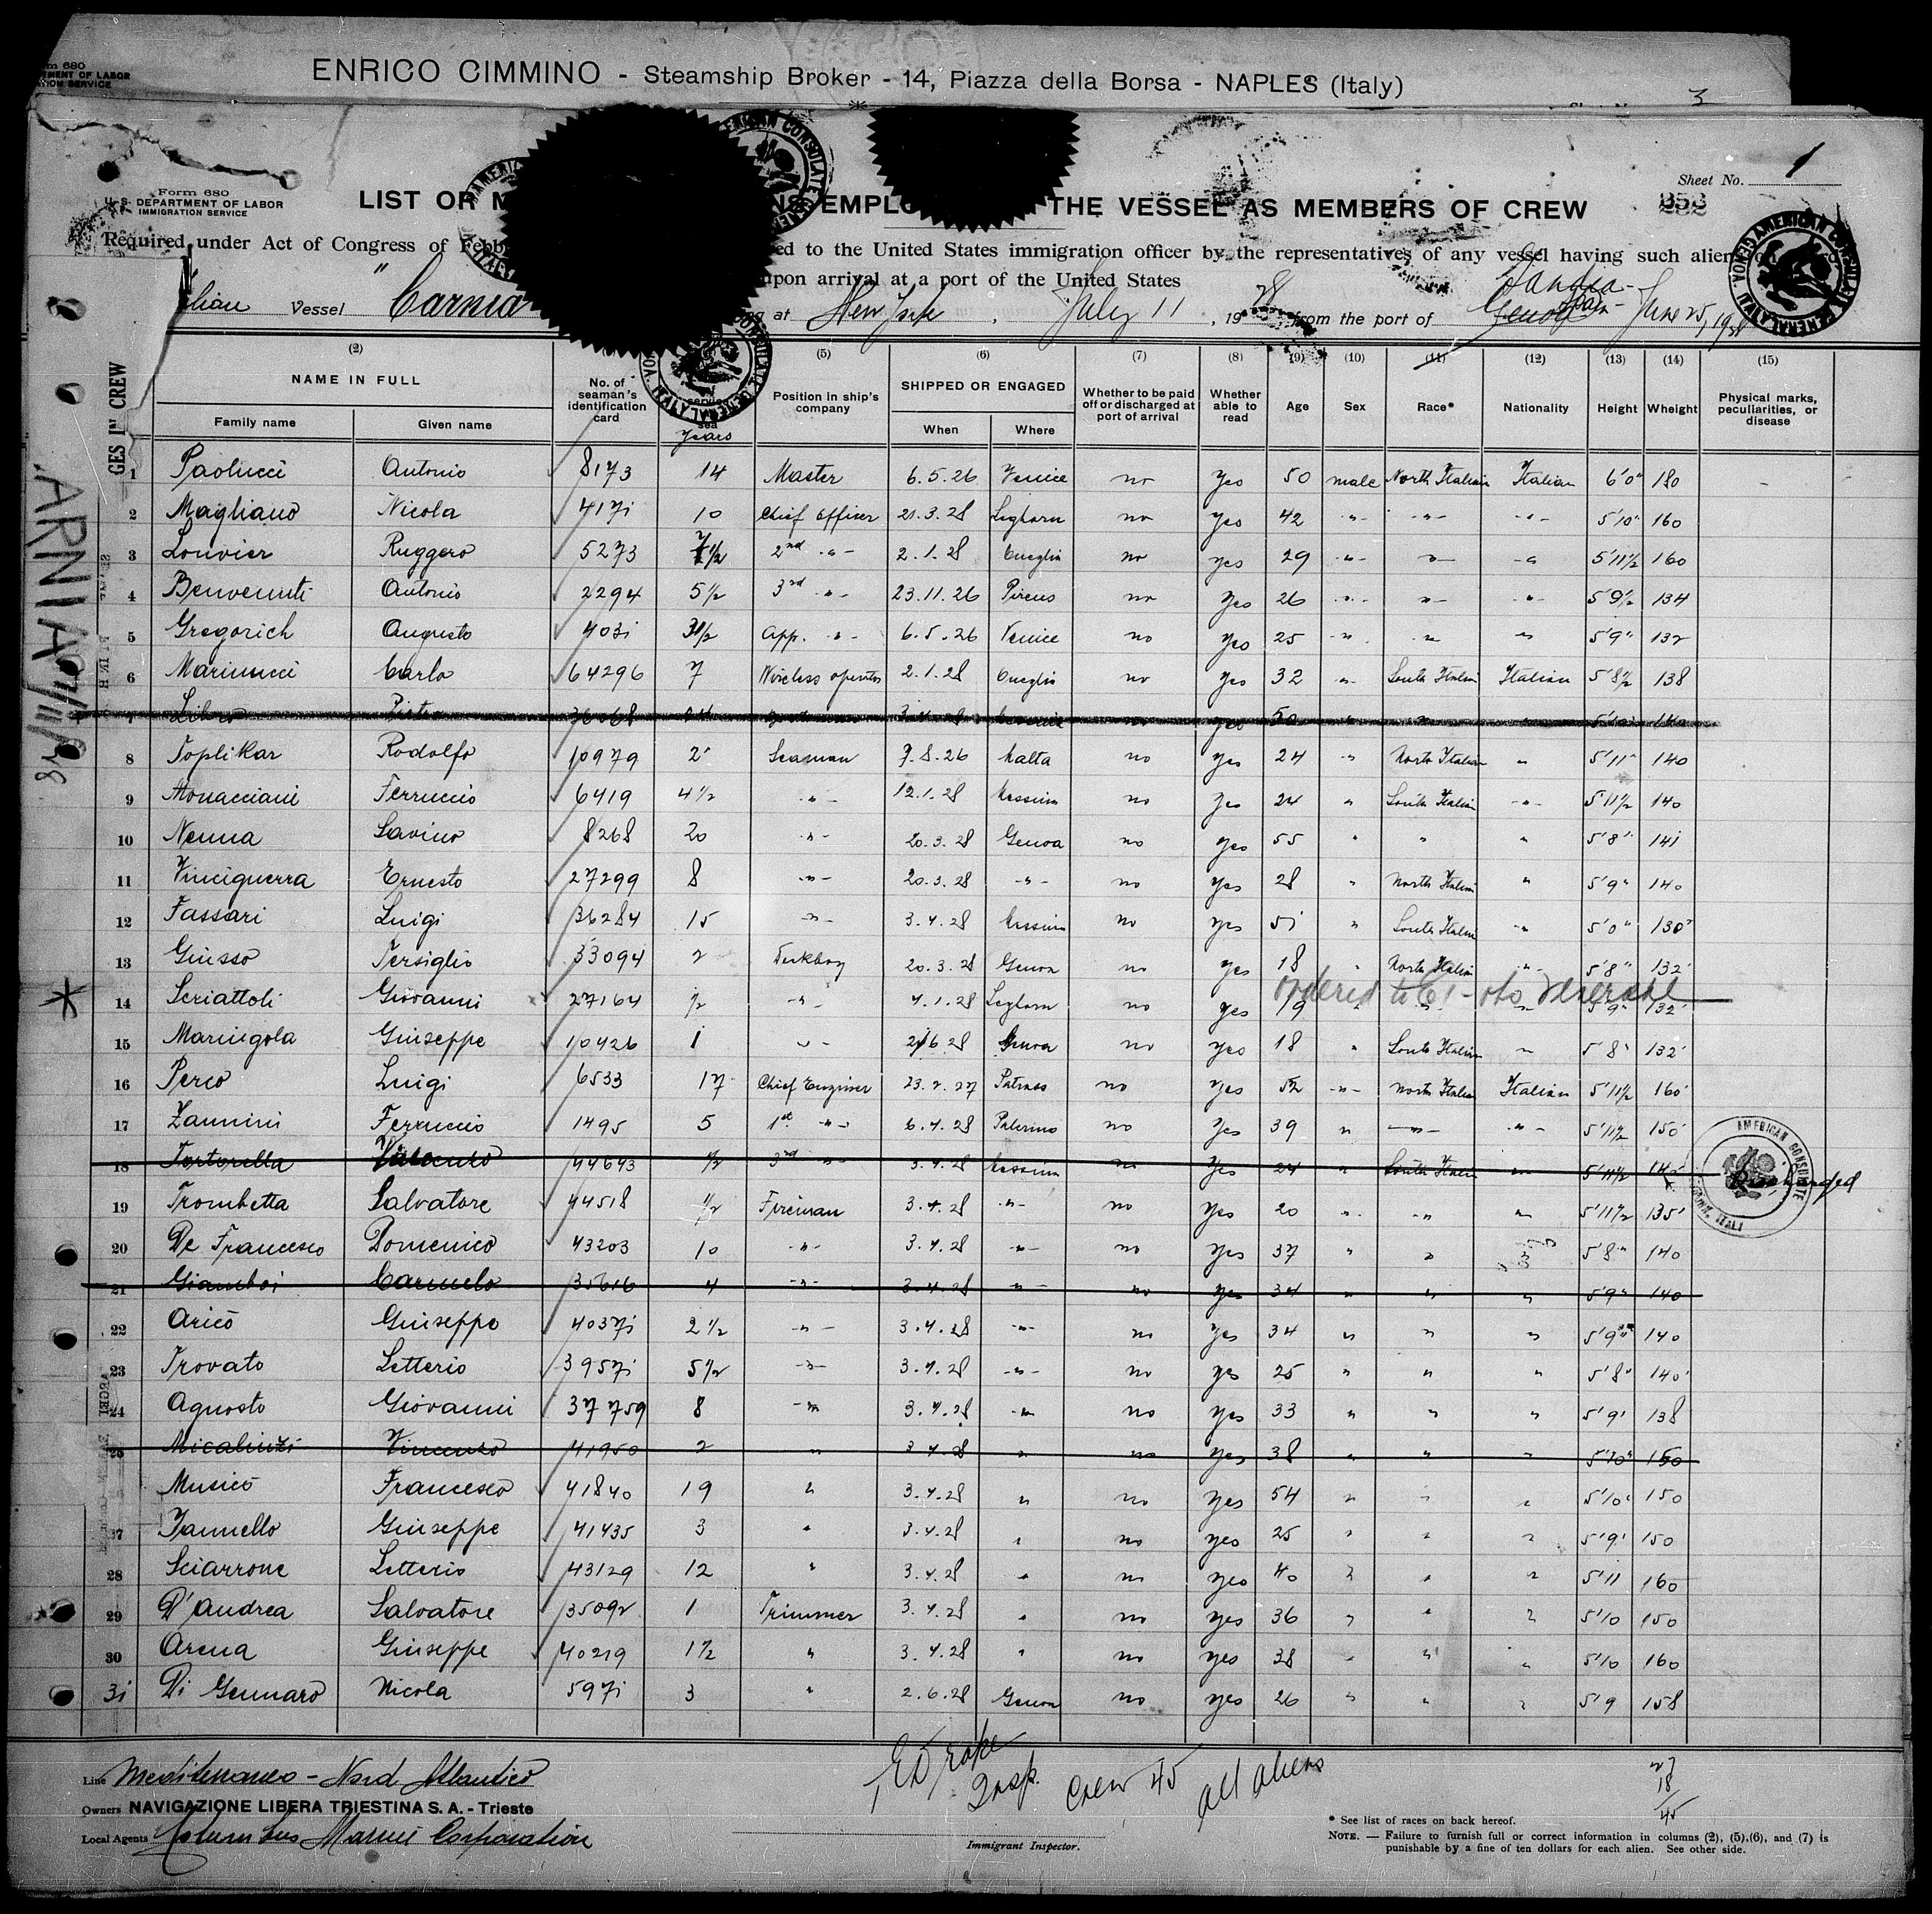 ENRICO CIMMINO - Steamship Broker - 14, Piazza della Borsa - NAPLES (Italy)
3
Form 680
U. S. DEPARTMENT OF LABOR
IMMIGRATION SERVICE
Sheet No. 1
LIST OR THE VESSEL AS MEMBERS OF CREW
Required under Act of Congress of to the United States immigration officer by the representatives of any vessel having such aliens
upon arrival at a port of the United States
Vessel "Carnia at New York, July 11, 1928 from the port of Genoa June 25, 1928
GES IN CREW
(2) (5) (6) (7) (8) (9) (10) (11) (12) (13) (14) (15)
NAME IN FULL
Family name Given name
No. of seaman's identification card
sea years
Position in ship's company
SHIPPED OR ENGAGED
When Where
Whether to be paid off or discharged at port of arrival
Whether able to read
Age Sex Race* Nationality Height Wheight
Physical marks, peculiarities, or disease
1 Paolucci Antonio 8173 14 Master 6.5.26 Venice no Yes 50 male North Italian Italian 6'0" 180 -
2 Magliano Nicola 4171 10 Chief Officer 21.3.28 Leghorn no yes 42 -"- -"- -"- 5'10" 160
3 Louvier Ruggero 5273 2nd -"- 2.1.28 no yes 29 -"- -"- -"- 5'11½ 160
4 Benvenuti Antonio 2294 5½ 3rd -"- 23.11.26 Pireus no Yes 26 -"- -"- -"- 5'9½ 134
5 Gregorich Augusto 4031 3½ App. -"- 6.5.26 Venice no Yes 25 -"- -"- " 5'9" 132
6 Marinucci Carlo 64296 7 Wireless operator 2.1.28 no Yes 32 " South Italian Italian 5'8½ 138
7 Pietro 36068 yes 50
8 Toplikar Rodolfo 10979 2 Seaman 9.8.26 Malta no yes 24 " North Italian " 5'11" 140
9 Monacciani Ferruccio 6419 4½ -"- 12.1.28 Messina no Yes 24 " South Italian -"- 5'11½ 140
10 Nenna Savino 8268 20 -"- 20.3.28 Genoa no yes 55 " " " 5'8" 141
11 Vinciguerra Ernesto 27299 8 -"- 20.3.28 -"- no yes 28 " North Italian " 5'9" 140
12 Fassari Luigi 36284 15 -"- 3.4.28 Messina no yes 51 " South Italian -"- 5'0" 130
13 Giusso Tersiglio 33094 2 Deckboy 20.3.28 Genoa no yes 18 " North Italian " 5'8" 132
14 Scriattoli Giovanni 27164 ½ -"- 4.1.28 Leghorn no yes 19 " " 5'9" 132
ordered to
15 Maringola Giuseppe 10426 1 -"- 28 Genoa no yes 18 " South Italian " 5'8" 132
16 Perco Luigi 6533 17 Chief Engineer 23.2.27 Patrass no yes 52 -"- North Italian Italian 5'11½ 160
17 Zannini Ferruccio 1495 5 1st -"- 6.4.28 Palermo no Yes 39 " -"- -"- 5'11½ 150
18 Tortorella 44643 ½ 3rd -"- 3.4.28 Messina no Yes 24 " South Italian " 5'11½ 140 Discharged
19 Trombetta Salvatore 44518 ½ Fireman 3.4.28 -"- no Yes 20 " " " 5'11½ 135
20 De Francesco Domenico 43203 10 -"- 3.4.28 -"- no Yes 37 " " 5'8" 140
21 Giamboi Carmelo 35616 4 -"- 3.4.28 -"- no yes 34 " " " 5'9" 140
22 Aricò Giuseppe 40371 2½ -"- 3.4.28 -"- no Yes 34 " " " 5'9" 140
23 Trovato Letterio 39571 5½ -"- 3.4.28 -"- no yes 25 " " " 5'8" 140
24 Agnosto Giovanni 37759 8 -"- 3.4.28 -"- no yes 33 " " " 5'9' 138
25 Micalizzi Vincenzo 41950 2 " 3.4.28 " no yes 38 " " " 5'10" 150
Musicò Francesco 41840 19 " 3.4.28 " no yes 54 " " " 5'10" 150
27 Iannello Giuseppe 41435 3 " 3.4.28 " no yes 25 " " " 5'9' 150
28 Sciarrone Letterio 43129 12 " 3.4.28 " no yes 40 " " " 5'11 160
29 D'Andrea Salvatore 35092 1 Trimmer 3.4.28 " no yes 36 " " " 5'10 150
30 Arena Giuseppe 40219 1½ " 3.4.28 " no yes 38 " " " 5'10 160
31 Di Gennaro Nicola 5971 3 " 2.6.28 Genoa no yes 26 " " " 5'9 158
Line Mediterraneo - Nord Atlantico
Owners NAVIGAZIONE LIBERA TRIESTINA S. A. - Trieste
Local Agents Columbus Marine Corporation
Insp. Crew 45 all aliens
Immigrant Inspector.
27
18
45
* See list of races on back hereof.
NOTE. — Failure to furnish full or correct information in columns (2), (5),(6), and (7) is
punishable by a fine of ten dollars for each alien. See other side.
AMERICAN CONSULATE